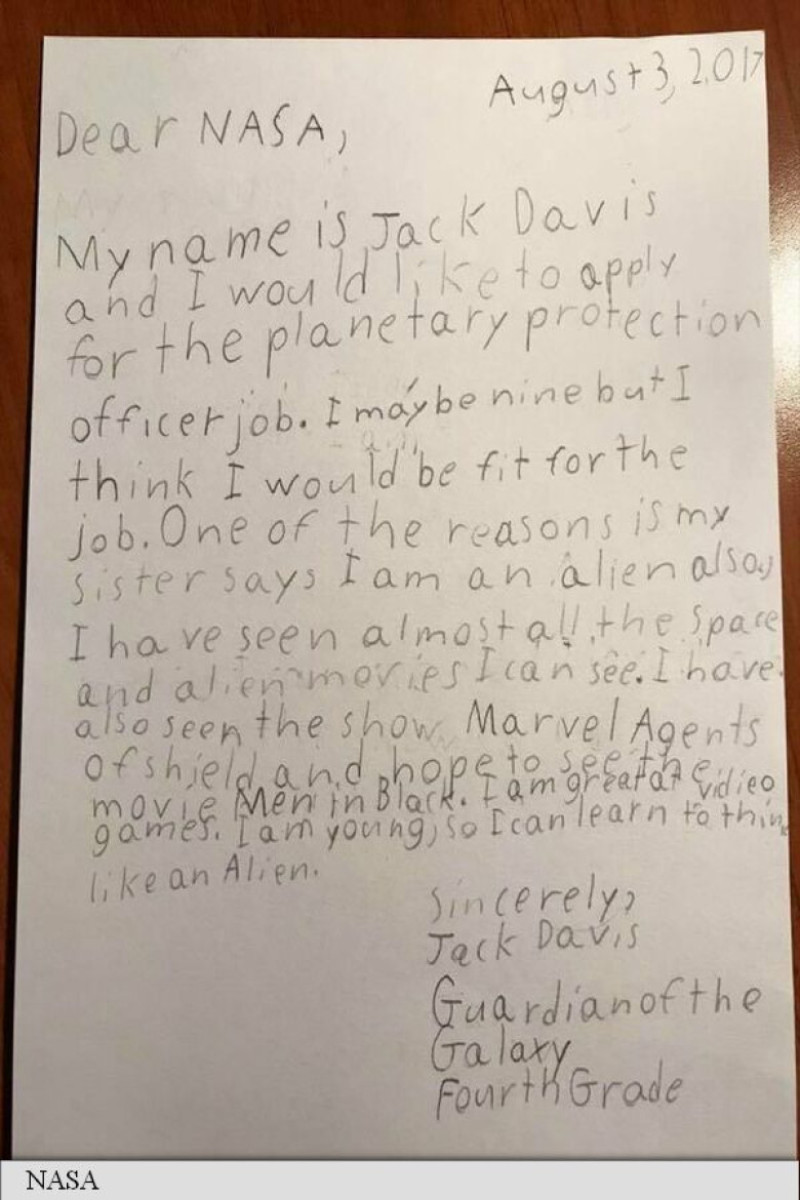 August 3, 2017
Dear NASA,
My name is Jack Davis
and I would like to apply
for the planetary protection
officer job. I may be nine but I
think I would be fit for the
job. One of the reasons is my
sister says I am an alien also,
I have seen almost all the space
and alien movies I can see. I have
also seen the show Marvel Agents
of shield and hope to see the
movie Men in Black. I am great at vidieo
games. I am young, so I can learn to think
like an Alien.
Sincerely,
Jack Davis
Guardian of the
Galaxy
Fourth Grade
NASA